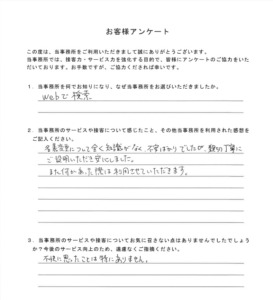 お客様アンケート
この度は、当事務所をご利用いただきまして誠にありがとうございます。
当事務所では、接客力・サービス力を強化する目的で、皆様にアンケートのご協力をいた
だいております。お手数ですが、ご協力くだされば幸いです。
1. 当事務所を何でお知りになり、なぜ当事務所をお選びいただきましたか。
webで検索
2. 当事務所のサービスや接客について感じたこと、その他当事務所を利用された感想を
ご記入ください。
名義変更について全く知識がなく、不安ばかりでしたが、親切丁寧に
ご説明いただき安心しました。
また何かあった際は利用させていただきます。
3. 当事務所のサービスや接客についてお気に召さない点はありませんでしたでしょう
か？今後のサービス向上のため、遠慮なくご指摘ください。
不快に思ったことは特にありません。